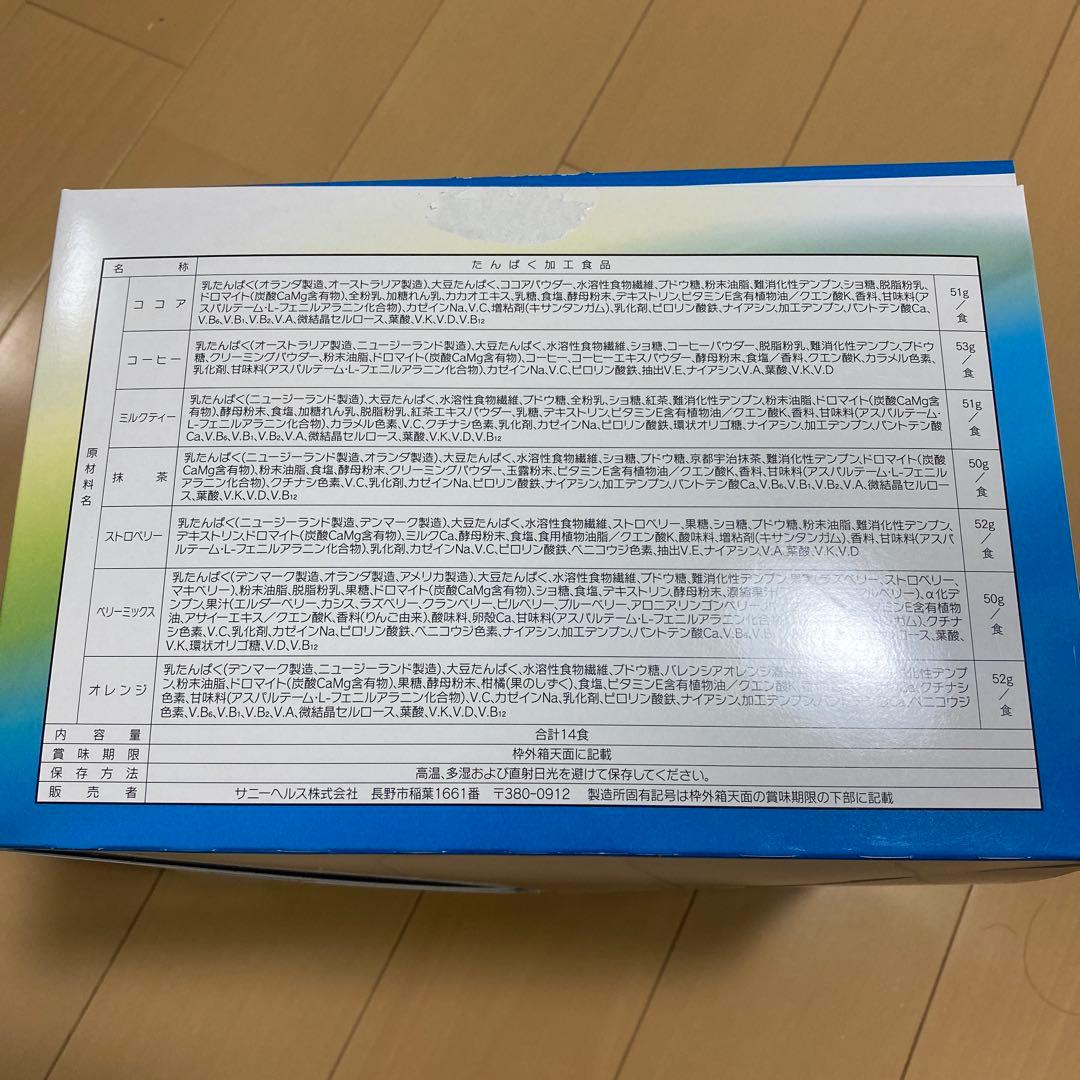 名称 たんぱく加工食品
原材料名
ココア
乳たんぱく(オランダ製造、オーストラリア製造)、大豆たんぱく、ココアパウダー、水溶性食物繊維、ブドウ糖、粉末油脂、難消化性デンプン、ショ糖、脱脂粉乳、
ドロマイト(炭酸CaMg含有物)、全粉乳、加糖れん乳、カカオエキス、乳糖、食塩、酵母粉末、デキストリン、ビタミンE含有植物油／クエン酸K、香料、甘味料(ア
スパルテーム・L-フェニルアラニン化合物)、カゼインNa、V.C、増粘剤(キサンタンガム)、乳化剤、ピロリン酸鉄、ナイアシン、加工デンプン、パントテン酸Ca、
V.B₆、V.B₁、V.B₂、V.A、微結晶セルロース、葉酸、V.K、V.D、V.B₁₂
51g／食
コーヒー
乳たんぱく(オーストラリア製造、ニュージーランド製造)、大豆たんぱく、水溶性食物繊維、ショ糖、コーヒーパウダー、脱脂粉乳、難消化性デンプン、ブドウ
糖、クリーミングパウダー、粉末油脂、ドロマイト(炭酸CaMg含有物)、コーヒー、コーヒーエキスパウダー、酵母粉末、食塩／香料、クエン酸K、カラメル色素、
乳化剤、甘味料(アスパルテーム・L-フェニルアラニン化合物)、カゼインNa、V.C、ピロリン酸鉄、抽出V.E、ナイアシン、V.A、葉酸、V.K、V.D
53g／食
ミルクティー
乳たんぱく(ニュージーランド製造)、大豆たんぱく、水溶性食物繊維、ブドウ糖、全粉乳、ショ糖、紅茶、難消化性デンプン、粉末油脂、ドロマイト(炭酸CaMg含
有物)、酵母粉末、食塩、加糖れん乳、脱脂粉乳、紅茶エキスパウダー、乳糖、デキストリン、ビタミンE含有植物油／クエン酸K、香料、甘味料(アスパルテーム・
L-フェニルアラニン化合物)、カラメル色素、V.C、クチナシ色素、乳化剤、カゼインNa、ピロリン酸鉄、環状オリゴ糖、ナイアシン、加工デンプン、パントテン酸
Ca、V.B₆、V.B₁、V.B₂、V.A、微結晶セルロース、葉酸、V.K、V.D、V.B₁₂
51g／食
抹茶
乳たんぱく(ニュージーランド製造、オランダ製造)、大豆たんぱく、水溶性食物繊維、ショ糖、ブドウ糖、京都宇治抹茶、難消化性デンプン、ドロマイト(炭酸
CaMg含有物)、粉末油脂、食塩、酵母粉末、クリーミングパウダー、玉露粉末、ビタミンE含有植物油／クエン酸K、香料、甘味料(アスパルテーム・L-フェニル
アラニン化合物)、クチナシ色素、V.C、乳化剤、カゼインNa、ピロリン酸鉄、ナイアシン、加工デンプン、パントテン酸Ca、V.B₆、V.B₁、V.B₂、V.A、微結晶セルロー
ス、葉酸、V.K、V.D、V.B₁₂
50g／食
ストロベリー
乳たんぱく(ニュージーランド製造、デンマーク製造)、大豆たんぱく、水溶性食物繊維、ストロベリー、果糖、ショ糖、ブドウ糖、粉末油脂、難消化性デンプン、
デキストリン、ドロマイト(炭酸CaMg含有物)、ミルクCa、酵母粉末、食塩、食用植物油脂／クエン酸K、酸味料、増粘剤(キサンタンガム)、香料、甘味料(アスパ
ルテーム・L-フェニルアラニン化合物)、乳化剤、カゼインNa、V.C、ピロリン酸鉄、ベニコウジ色素、抽出V.E、ナイアシン、V.A、葉酸、V.K、V.D
52g／食
ベリーミックス
乳たんぱく(デンマーク製造、オランダ製造、アメリカ製造)、大豆たんぱく、水溶性食物繊維、ブドウ糖、難消化性デンプン、(ラズベリー、ストロベリー、
マキベリー)、粉末油脂、脱脂粉乳、果糖、ドロマイト(炭酸CaMg含有物)、ショ糖、食塩、デキストリン、酵母粉末、濃縮果汁 ルベリー)、α化デ
ンプン、果汁(エルダーベリー、カシス、ラズベリー、クランベリー、ビルベリー、ブルーベリー、アロニア、リンゴンベリー、 E含有植物
油、アサイーエキス／クエン酸K、香料(りんご由来)、酸味料、卵殻Ca、甘味料(アスパルテーム・L-フェニルアラニン化合物) ガム)、クチナ
シ色素、V.C、乳化剤、カゼインNa、ピロリン酸鉄、ベニコウジ色素、ナイアシン、加工デンプン、パントテン酸Ca、V.B₆ ロース、葉酸、
V.K、環状オリゴ糖、V.D、V.B₁₂
50g／食
オレンジ
乳たんぱく(デンマーク製造、ニュージーランド製造)、大豆たんぱく、水溶性食物繊維、ブドウ糖、バレンシアオレンジ 化性デンプ
ン、粉末油脂、ドロマイト(炭酸CaMg含有物)、果糖、酵母粉末、柑橘(果のしずく)、食塩、ビタミンE含有植物油／クエン酸K、 クチナシ
色素、甘味料(アスパルテーム・L-フェニルアラニン化合物)、V.C、カゼインNa、乳化剤、ピロリン酸鉄、ナイアシン、加工デンプン、パントテン ベニコウジ
色素、V.B₆、V.B₁、V.B₂、V.A、微結晶セルロース、葉酸、V.K、V.D、V.B₁₂
52g／食
内容量 合計14食
賞味期限 枠外箱天面に記載
保存方法 高温、多湿および直射日光を避けて保存してください。
販売者 サニーヘルス株式会社 長野市稲葉1661番 〒380-0912 製造所固有記号は枠外箱天面の賞味期限の下部に記載